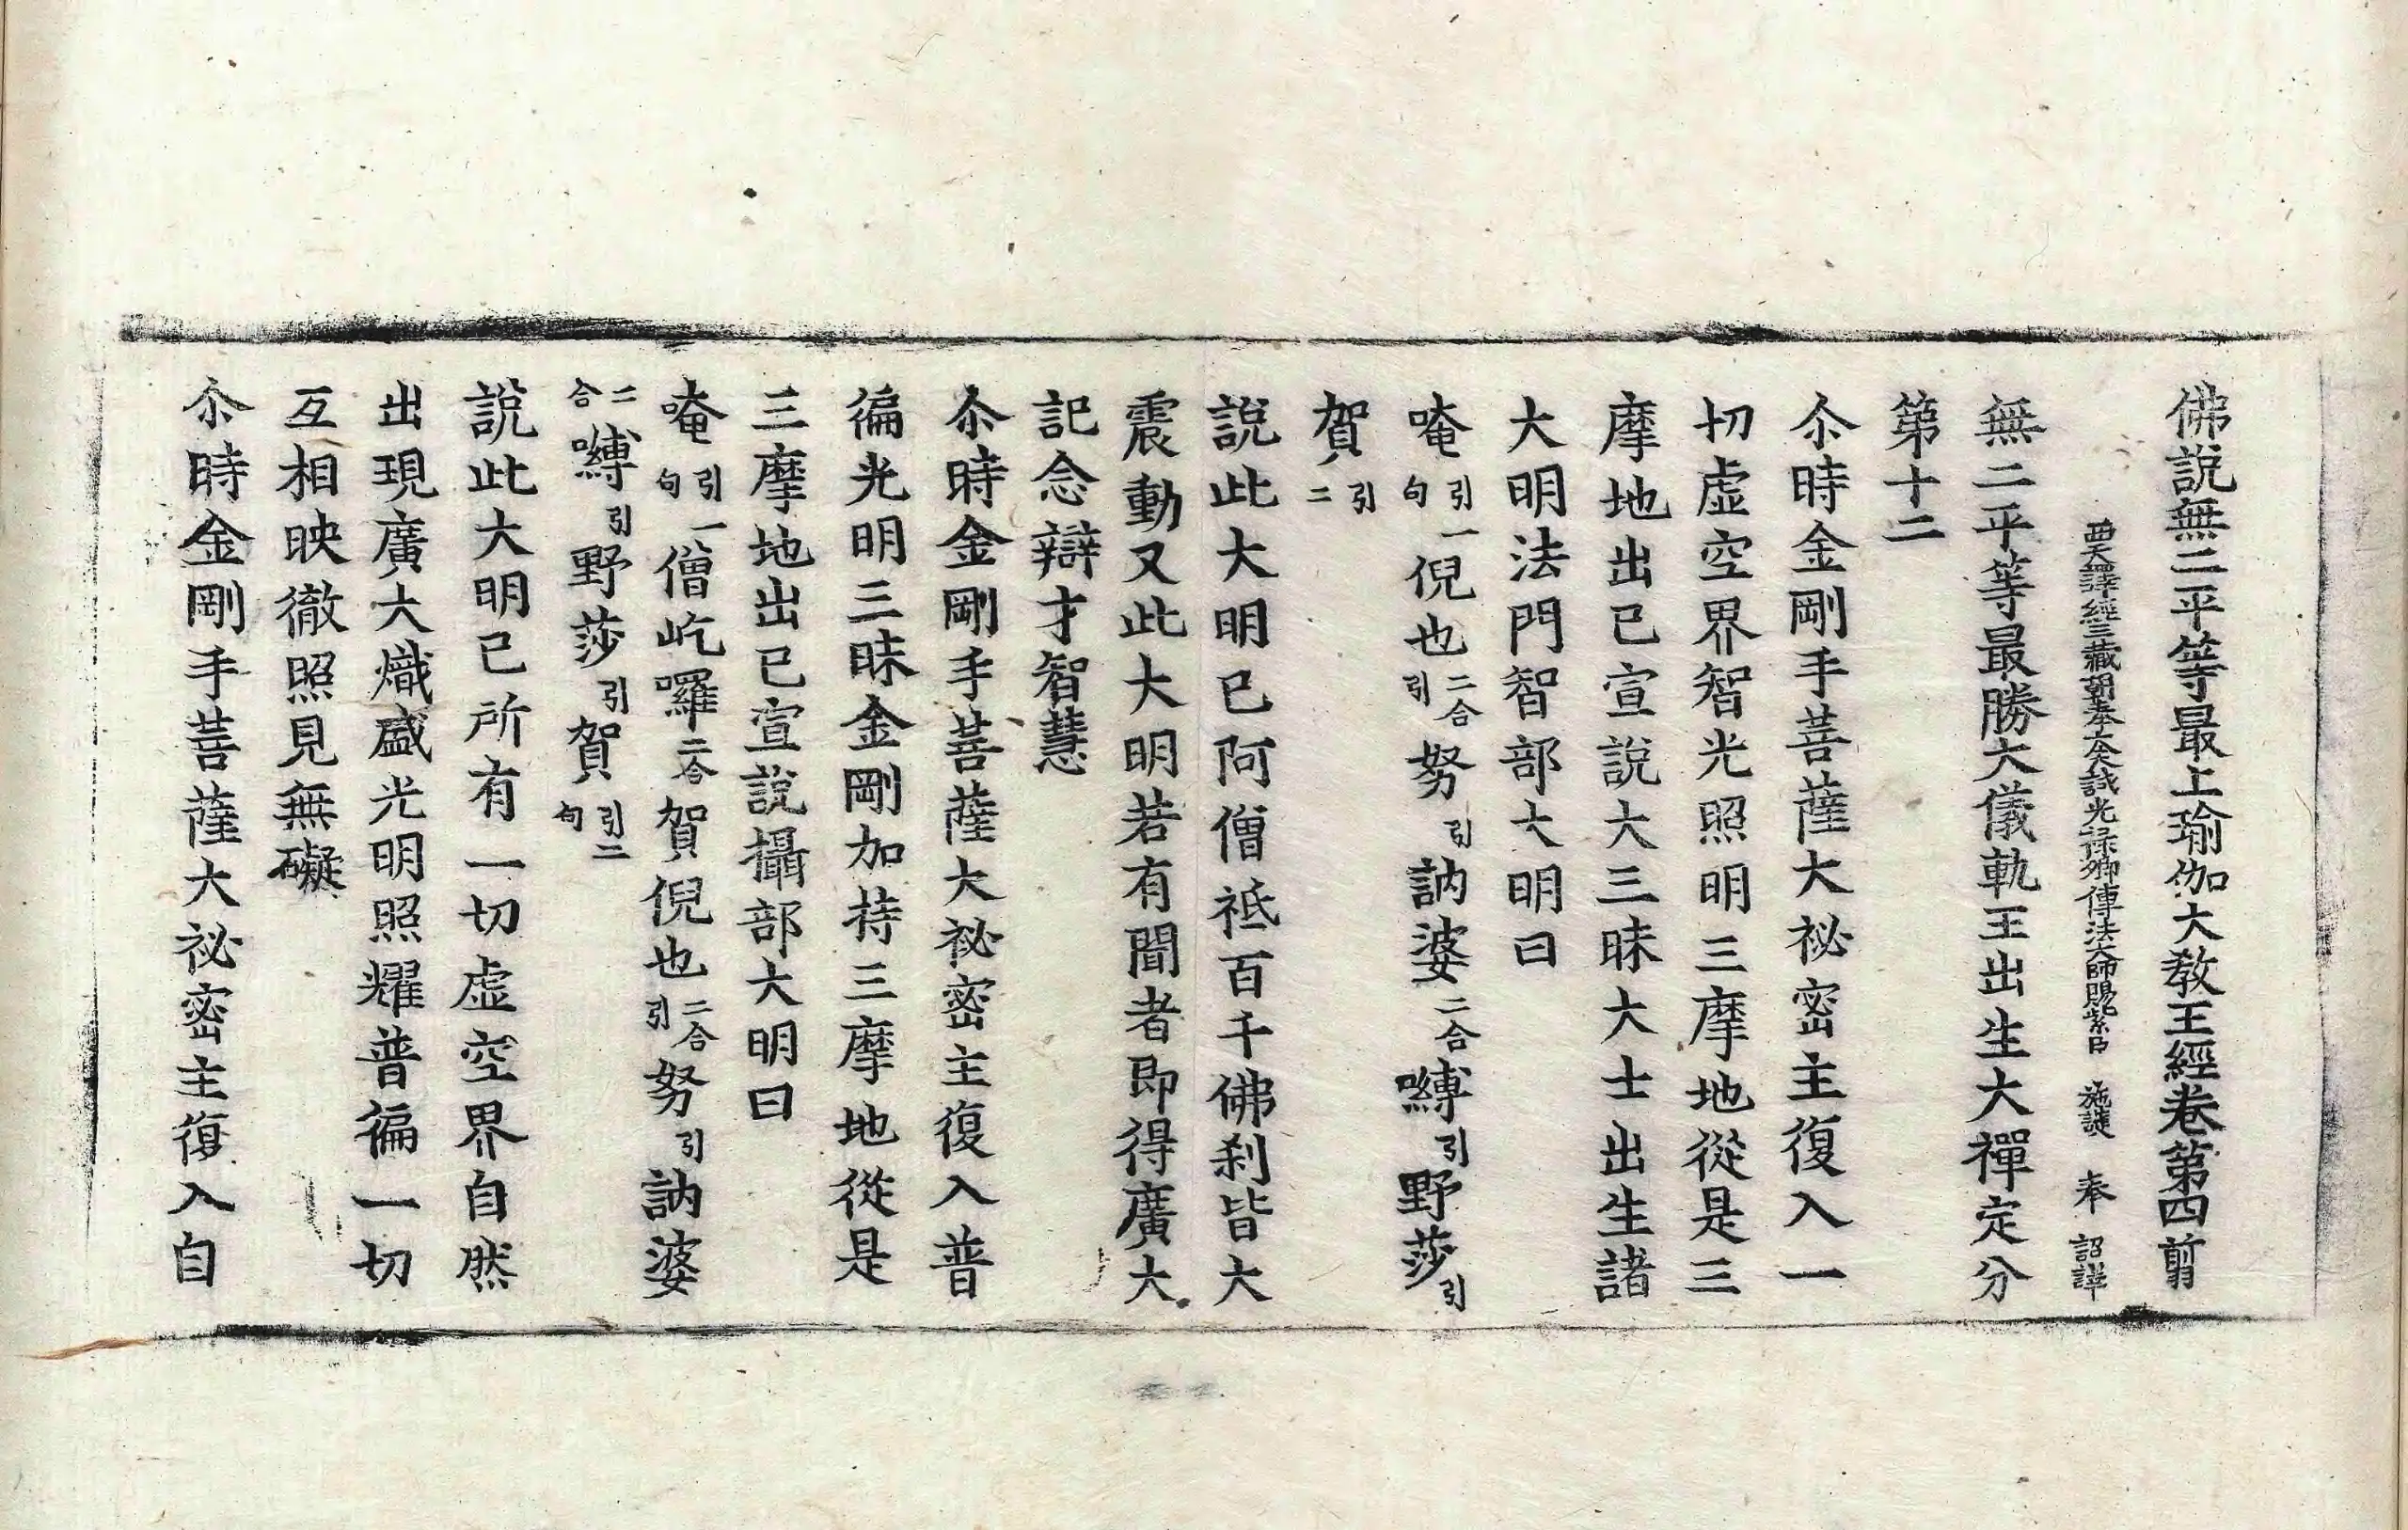 佛說無二平等最上瑜伽大教王經卷第四 翦
西天譯經三藏朝奉大夫試光祿卿傳法大師賜紫臣 施護 奉 詔譯
無二平等最勝大儀軌王出生大禪定分
第十二
尒時金剛手菩薩大祕密主復入一
切虛空界智光照明三摩地從是三
摩地出已宣說大三昧大士出生諸
大明法門智部大明曰
唵引一句倪也二合引努引訥婆二合嚩引野莎引
賀引二
說此大明已阿僧祇百千佛剎皆大
震動又此大明若有聞者即得廣大
記念辯才智慧
尒時金剛手菩薩大祕密主復入普
徧光明三昧金剛加持三摩地從是
三摩地出已宣說攝部大明曰
唵引一句僧屹囉二合賀倪也二合引努引訥婆
二合嚩引野莎引賀引二句
說此大明已所有一切虛空界自然
出現廣大熾盛光明照耀普徧一切
互相映徹照見無礙
尒時金剛手菩薩大祕密主復入自